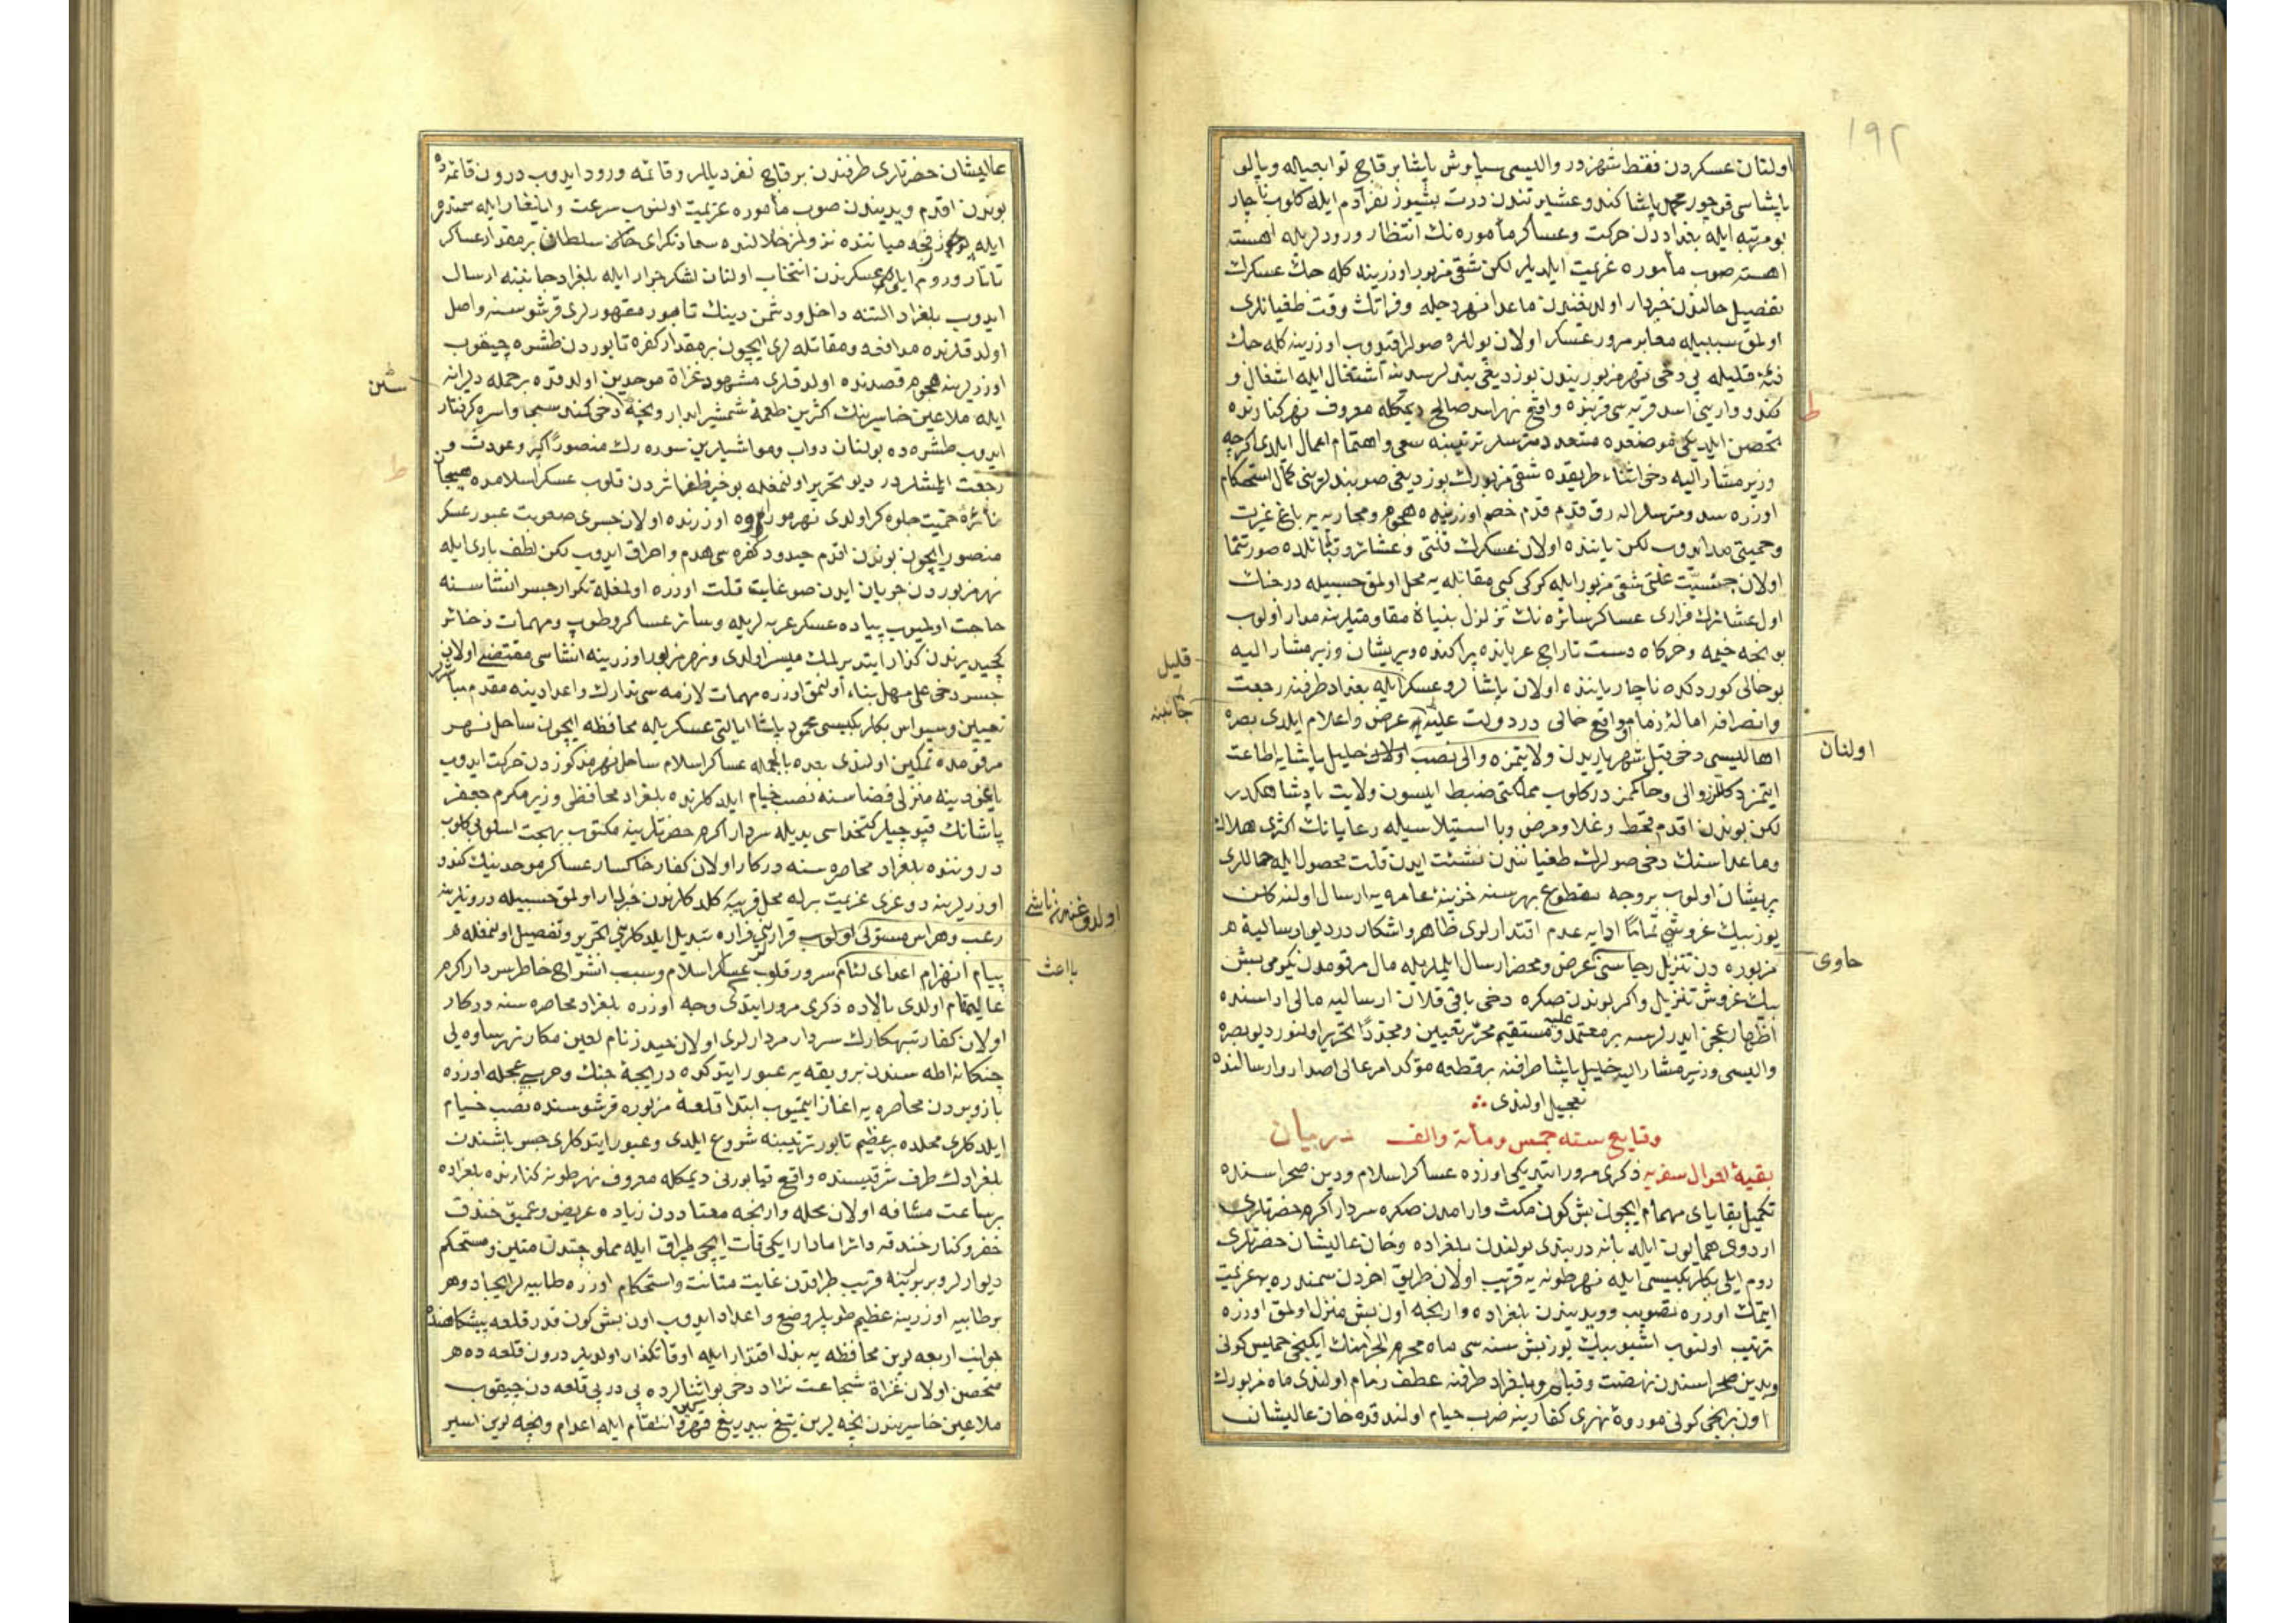 ۱۹۲
اولنان عسكردن فقط شهرزور واليسى سياوش پاشا بر قاچ توابعيله وبالو
پاشاسى محمد پاشا كندو عشيرتندن درت بشيوز نفر آدم ايله كلوب ناچار
بو مرتبه ايله بغداددن حركت وعساكر مأموره نك انتظار ورودلريله آهسته
آهسته صوب مأموره عزيمت ايلديلر لكن شقئ مزبور اوزرينه كله جك عسكرك
تفصيل حالندن خبردار اولديغندن ماعدا نهر دجله وفراتك وقت طغيانلرى
اولمق سببيله معابر مرور عسكر اولان يوللره صولر اوزرينه كله جك
فئۀ قليله يى دخى نهر مزبوريندن بوزديغى بندلر سدينه اشتغال ايله اشغال و
كندو واريسى اسد قريه سى قربنده واقع نهر اسد صالح ديمكله معروف نهر كنارنده
تحصن ايلديكى موضعده متعدد مترسلر ترتيبنه سعى واهتمام اعمال ايلدى اكرچه
وزير مشار اليه دخى اثناء طريقده شقئ مزبورك بوزديغى صو بندلرينى كمال استحكام
اوزره سد و مترسلر ايله رق قدم قدم خصم اوزرينه هجوم ومحاربه يه باغ غيرت
وحميتى مد ايدوب لكن ياننده اولان عسكرك قلتى وعشائر وقبائلده صورتنما
اولان جنسيت علتى شقئ مزبور ايله كركى كبى مقاتله يه محل اولمق حسبيله در جنك
اول عشائرك فرارى عساكر سائره نك تزلزل بنياۀ مقاومتلرينه مدار اولوب
بو نجه خيمه وخركاه دست تاراج عربانده پراكنده وپريشان وزير مشار اليه
بو حالى كوردكده ناچار ياننده اولان پاشالر وعسكر ايله بغداد طرفنه رجعت
قليل
جانبنه
وانصرافه امالۀ زمام و واقع حالى در دولت عليه يه عرض واعلام ايلدى بصره
اهاليسى دخى قبل شهرياريدن ولايتمزه والى نصب اولان خليل پاشايه اطاعت
اولنان
ايتمزدكللر والى وحاكمز در كلوب مملكتى ضبط ايلسون ولايت پادشاهكدر
لكن بوندن اقدم قحط وغلا ومرض وبا استيلاسيله رعايانك اكثرى هلاك
وماعداسنك دخى صولرك طغيانندن نشئت ايدن قلت محصول ايله حاللرى
پريشان اولوب بر وجه مقطوع بهر سنه خزينۀ عامره يه ارسال اولنه كلن
يوز بيك غروشى تماما ادايه عدم اقتدارلرى ظاهر واشكار در ديو ارساليۀ
مزبوره دن تنزيل رجاسنى عرض ومحضر ارسال ايلملريله مال مرقومدن يكرمى بش
حاوى
بيك غروش تنزيل واكر بوندن صكره دخى باقى قلان ارساليه مالى اداسنده
اظهار عجز ايدرلرسه بر معتمد عليه ومستقيم محرر تعيين ومجددا تحرير اولنور ديو بصره
واليسى وزير مشار اليه خليل پاشا طرفنه بر قطعه مؤكد امر عالى اصدار وارسالنده
تعجيل اولندى
وقايع سنه خمس ومأته والف در بيان
بقيۀ احوال سفريه ذكرى مرور ايتديكى اوزره عساكر اسلام ودين صحراسنده
تكميل بقاياى مهمام ايچون بش كون مكث وارامدن صكره سردار اكرم حضرتلرى
اردوى همايون ايله يانه دربندى يولندن بلغراده وخان عاليشان حضرتلرى
روم ايلى بكلربكيسى ايله نهر طونه يه قريب اولان طريق اخردن سمندره يه عزيمت
ايتمك اوزره تصويب وويديندن بلغراده وارنجه اون بش منزل اولمق اوزره
ترتيب اولنوب اشبو بيك يوز بش سنه سى ماه محرم الحرامنك ايكنجى خميس كونى
ويدين صحراسندن نهضت وقيام وبلغراد طرفنه عطف زمام اولندى ماه مزبورك
اون برنجى كونى موروه نهرى كنارينه ضرب خيام اولندقده خان عاليشان
عاليشان حضرتلرى طرفندن بر قاچ نفر ديللر وقائمه ورود ايدوب درون قائمه ده
بوندن اقدم ويديندن صوب مأموره عزيمت اولنوب سرعت وايلغار ايله سمندره
ايله ميانننده نزوللرى خلالنده سعادتكراى خان سلطان بر مقدار عساكر
تاتار وروم ايلى عسكرندن انتخاب اولنان لشكر جرار ايله بلغراد جانبنه ارسال
ايدوب بلغراد التنه داخل ودشمن دينك تابور مقهورلرى قرشوسنه واصل
اولدقلرنده مدافعه ومقاتله لرى ايچون بر مقدار كفره تابوردن طشره چيقوب
اوزرلرينه هجوم قصدنده اولدقلرى مشهود غزاة موحدين اولدقده بر حمله دليرانه
شين
ايله ملاعين خاسرينك اكثرين طعمۀ شمشير ابدار ونجه دخى كمند واسره كرفتار
ايدوب طشره ده بولنان دواب ومواشيلرين سوره رك منصورا وعودت و
رجعت ايلمشلردر ديو تحرير اولنمغله بو خبر ظفر اثردن قلوب عسكر اسلامده هيجان
نائرۀ حميت جلوه كر اولدى نهر موراوه اوزرنده اولان جسرى صعوبت عبور عسكر
منصور ايچون بوندن اقدم حيدود كفره سى هدم واحراق ايدوب لكن لطف بارى ايله
نهر مزبوردن جريان ايدن صو غايت قلت اوزره اولمغله تكرار جسر انشاسنه
حاجت اولميوب پياده عسكر عربه لريله وسائر عساكر وطوپ ومهمات ذخائر
كچيد يرندن كذار ايتديرلمك ميسر اولدى ونهر مزبور اوزرينه انشاسى مقتضى اولان
جسر دخى على مهل بناء اولنمق اوزره مهمات لازمه سى تدارك واعدادينه مقدم مباشر
تعيين وسيواس بكلربكيسى محمود پاشا ايالتى عسكريله محافظه ايچون ساحل نهر
مرقومده تمكين اولندى بعده بالجمله عساكر اسلام ساحل نهر مذكوردن حركت ايدوب
منزلى فضاسنه نصب خيام ايلدكلرنده بلغراد محافظى وزير مكرم جعفر
پاشانك قپوجيلر كتخداسى يديله سردار اكرم حضرتلرينه مكتوب بهجت اسلوبى كلوب
دروننده بلغراد محاصره سنه دركار اولان كفار خاكسار عساكر موحدينك كندو
اوزرلرينه دوغرى عزيمت برله محل قريبه كلدكلرندن خبردار اولمق حسبيله درونلرينه
اولدوغندن ناشى
رعب وهراس مستولى اولوب قرارلرينى فراره تبديل ايلدكلرينى تحرير وتفصيل اولنمغله
پيام انهزام اعداى لئام سرور قلوب عساكر اسلام وسبب انشراح خاطر سردار اكرم
باعث
عاليمقام اولدى بالاده ذكرى مرور ايتديكى وجه اوزره بلغراد محاصره سنه دركار
اولان كفار تبهكارك سردار مردارلرى اولان نام لعين مكار نهر ساوه يى
چنكانه اطه سندن بر ويقه يه عبور ايتدكده دريچۀ جنك وحربى عجله اوزره
باز ويردن محاصره يه اغاز ايتميوب ابتدا قلعۀ مزبوره قرشوسنده نصب خيام
ايلدكلرى محلده بر عظيم تابور ترتيبنه شروع ايلدى وعبور ايتدكلرى جسر باشندن
بلغرادك طرف شرقيسنده واقع ديمكله معروف نهر طونه كنارنده بلغراده
بر ساعت مسافه اولان محله وارنجه معتاددن زياده عريض وعميق خندق
حفر وكنار خندقه دائرا مادار ايكى قات ايچى طپراق ايله مملو چتدن متين ومستحكم
ديوارلر وبربرينه قريب طرفدن غايت متانت واستحكام اوزره طابيه لر ايجاد وهر
بر طابيه اوزرينه عظيم طوپلر وضع واعداد ايدوب اون بش كون قدر قلعه پيشكاهنده
جوانب اربعه لرين محافظه يه بذل اقتدار ايله اوقاتكذار اولديلر درون قلعه ده
متحصن اولان غزاة شجاعت نژاد دخى بو اثنالرده پى در پى قلعه دن چيقوب
ملاعين خاسريندن نجه لرين تيغ بيدريغ قهر وانتقام ايله اعدام ونجه لرين اسير